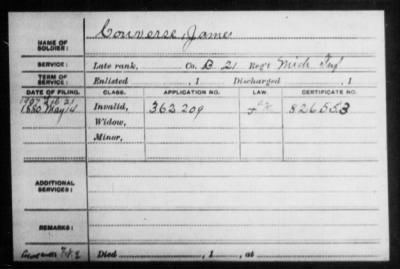 NAME OF SOLDIER: Converse, James
SERVICE: Late rank, Co. B 21 Reg't Mich Inf
TERM OF SERVICE: Enlisted , 1 Discharged , 1
DATE OF FILING. CLASS. APPLICATION NO. LAW. CERTIFICATE NO.
1907 Feb 21
1880 May 14 Invalid, 362209 826553
Widow,
Minor,
ADDITIONAL SERVICES:
REMARKS:
Died , 1 , at